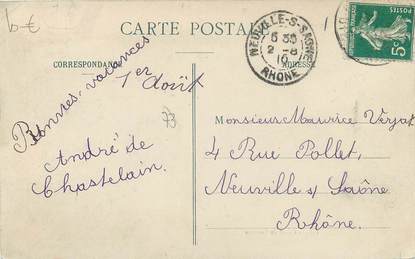 6 €
CARTE POSTALE
CORRESPONDANCE
ADRESSE
NEUVILLE-S-SAÔNE
5 35
2 - 8
10
RHÔNE
5c
1er Août
Bonnes vacances
André de
Chastelain.
73
Monsieur Maurice Verjat
4 Rue Pollet,
Neuville s/ Saône
Rhône.